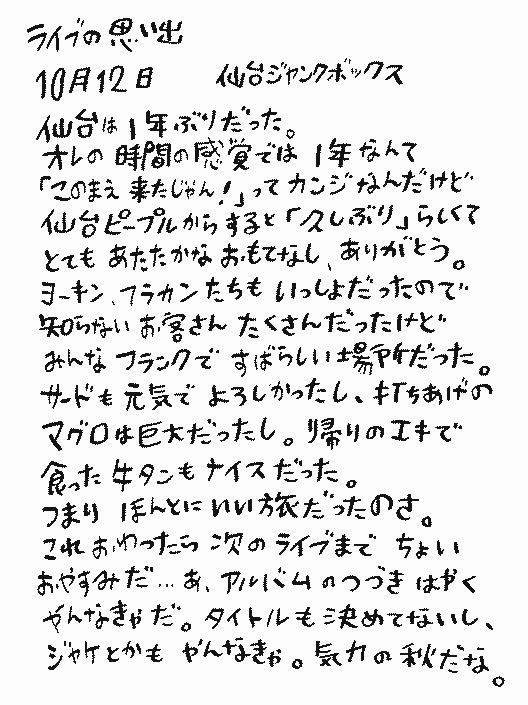 ライブの思い出
10月12日 仙台ジャンクボックス
仙台は1年ぶりだった。
オレの時間の感覚では1年なんて
「このまえ来たじゃん!」ってカンジなんだけど
仙台ピープルからすると「久しぶり」らしくて
とてもあたたかなおもてなし、ありがとう。
ヨーキン、フラカンたちもいっしょだったので
知らないお客さんたくさんだったけど
みんなフランクですばらしい場所だった。
サードも元気でよろしかったし、打ちあげの
マグロは巨大だったし。帰りのエキで
食った牛タンもナイスだった。
つまりほんとにいい旅だったのさ。
これおわったら次のライブまでちょい
おやすみだ…あ、アルバムのつづきはやく
やんなきゃだ。タイトルも決めてないし、
ジャケとかもやんなきゃ。気力の秋だな。